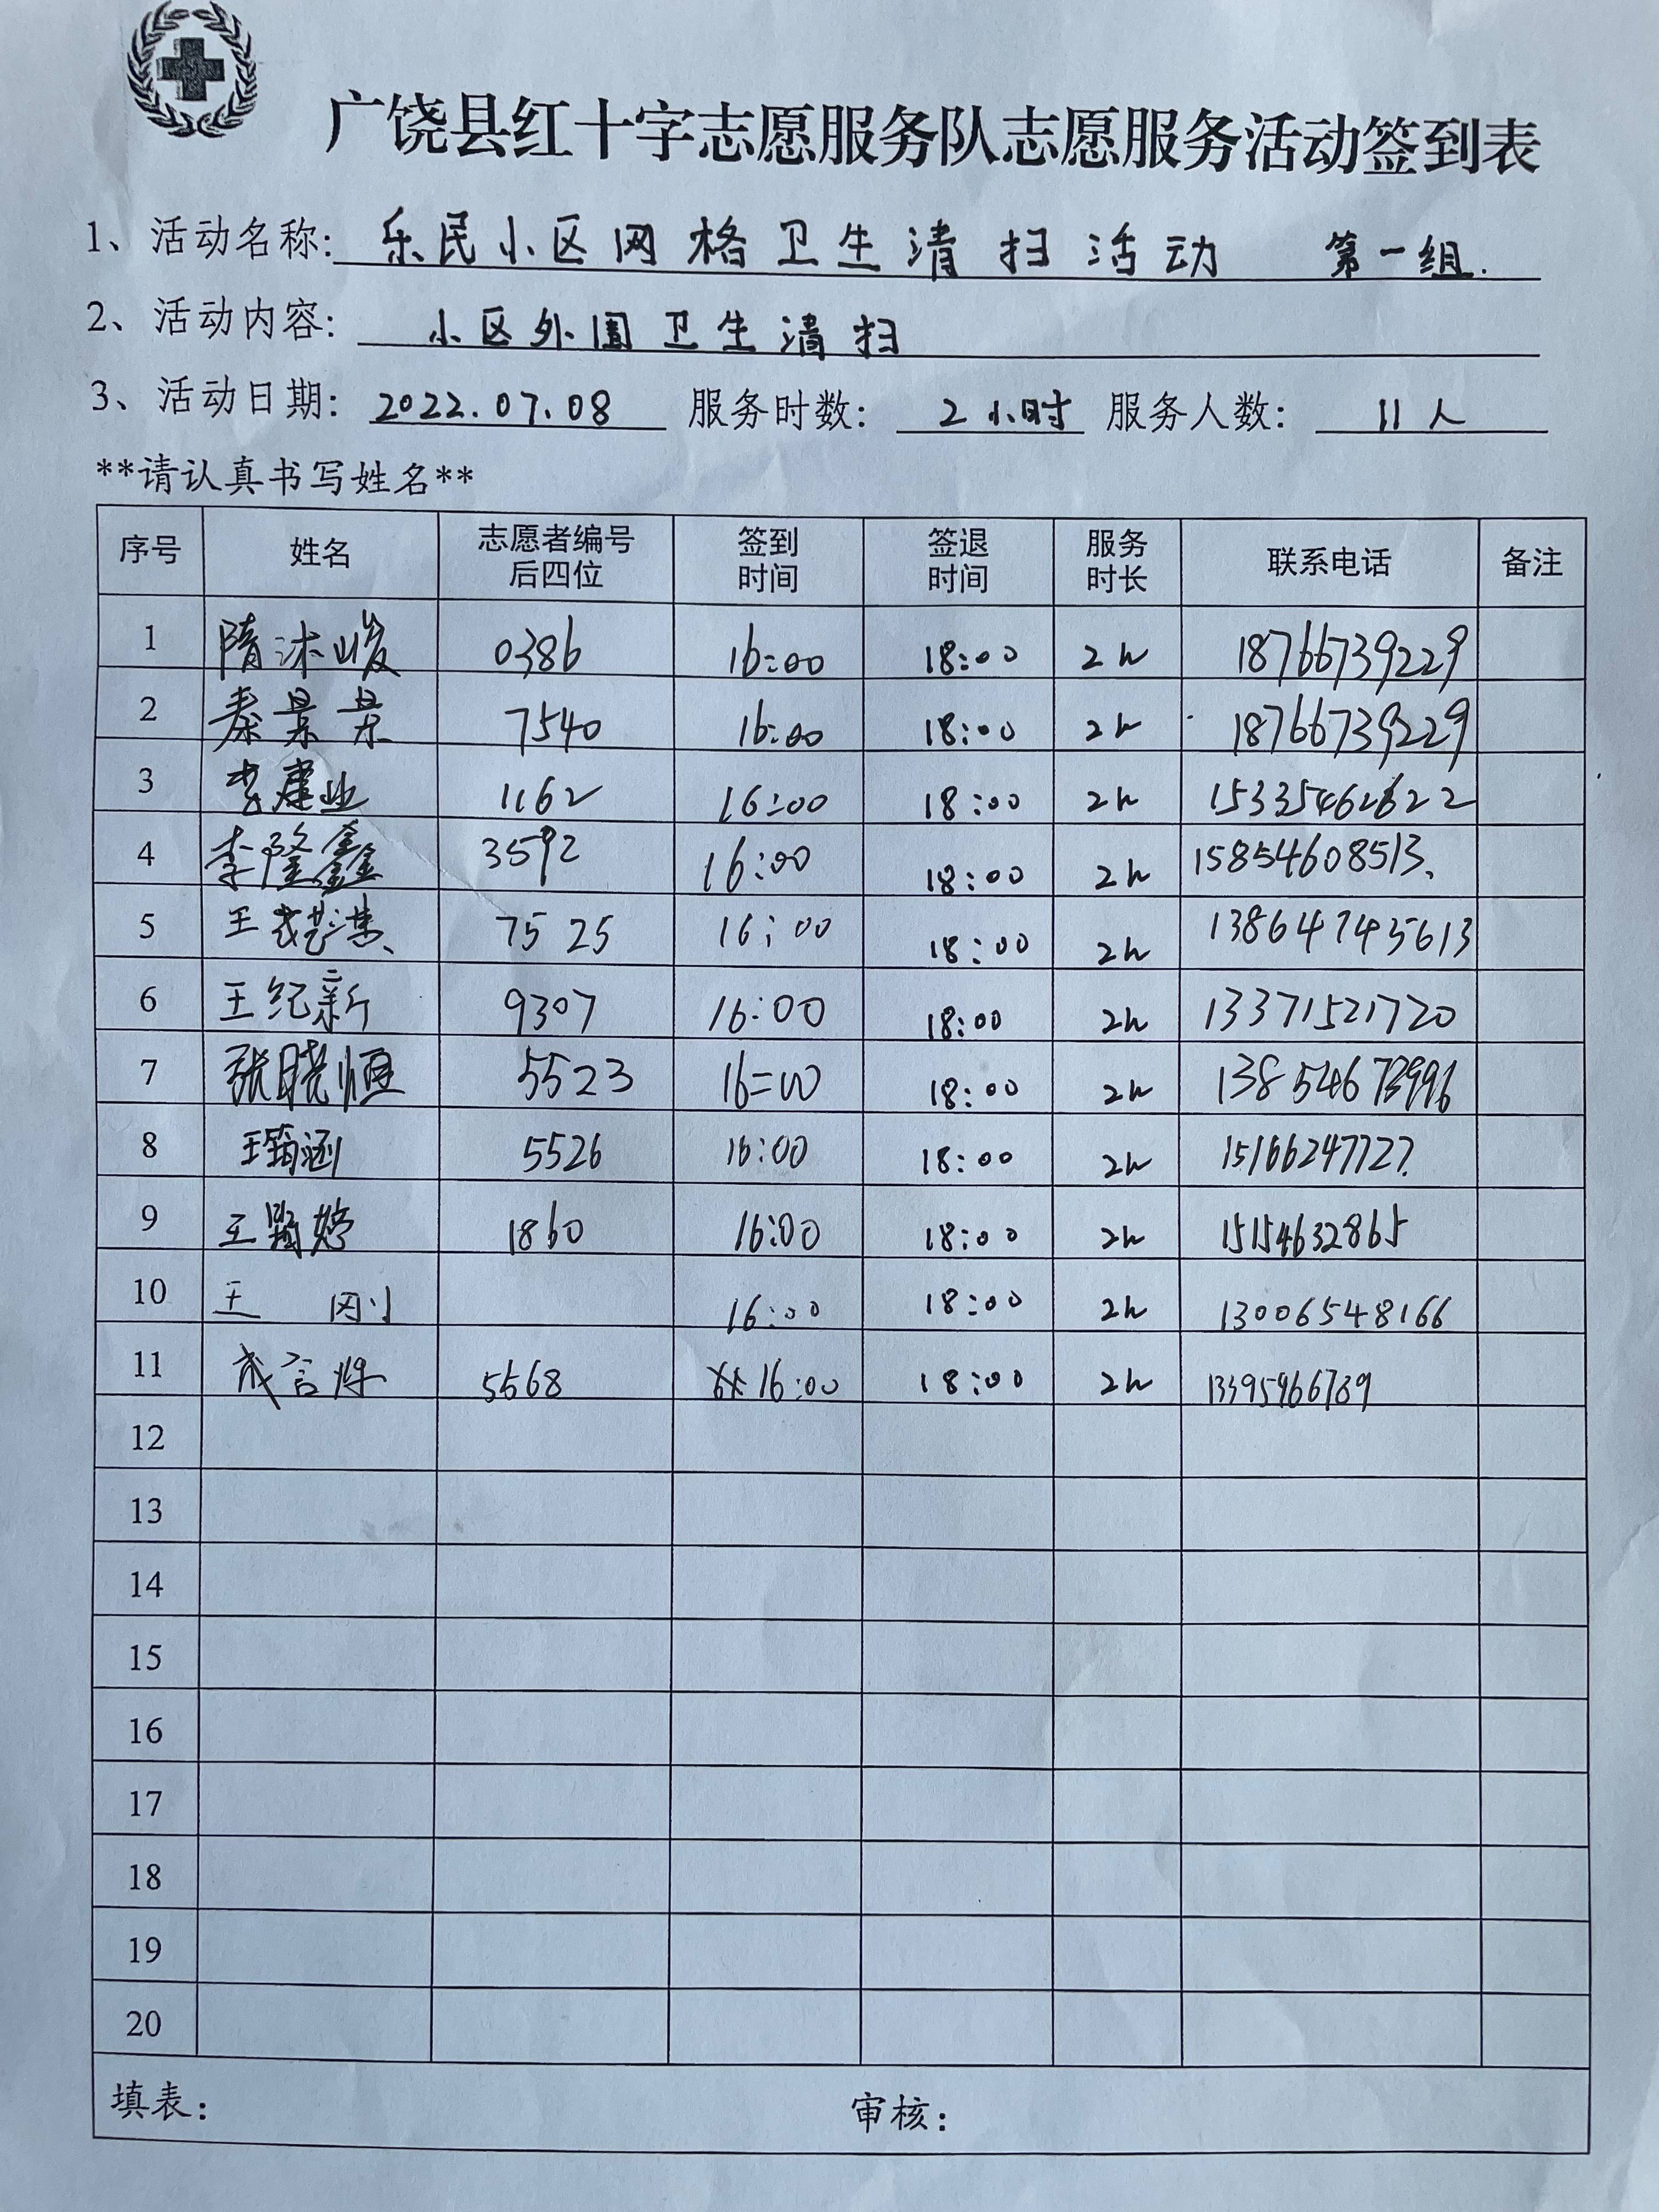 广饶县红十字志愿服务队志愿服务活动签到表
1、活动名称: 乐民小区网格卫生清扫活动 第一组.
2、活动内容: 小区外围卫生清扫
3、活动日期: 2022.07.08 服务时数: 2小时 服务人数: 11人
**请认真书写姓名**
序号 姓名 志愿者编号后四位 签到时间 签退时间 服务时长 联系电话 备注
1 隋沐峻 0386 16:00 18:00 2h 18766739229
2 秦景景 7540 16:00 18:00 2h 18766739229
3 李建业 1162 16:00 18:00 2h
4 李隆鑫 3592 16:00 18:00 2h 15854608513.
5 王 7525 16:00 18:00 2h
6 王纪新 9307 16:00 18:00 2h 13371521720
7 张晓恒 5523 16:00 18:00 2h 13854673996
8 王筠涵 5526 16:00 18:00 2h 15166247727.
9 王 1860 16:00 18:00 2h 15154632865
10 王 刚 16:00 18:00 2h 13006548166
11 成言烨 5568 16:00 18:00 2h
12
13
14
15
16
17
18
19
20
填表: 审核: